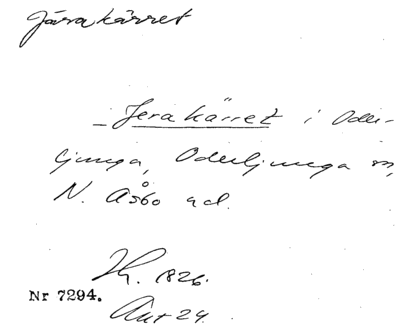 Järakärret
– Jerakärret i Oder-
ljunga, Oderljunga sn,
N. Åsbo hd.
1826.
Nr 7294.
Akt 24.